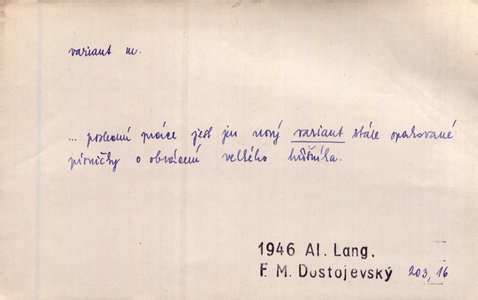 variant m.
... poslední práce jest jen nový variant stále opakované
písničky o obrácení velkého hříšníka.
1946 Al. Lang.
F. M. Dostojevský 203, 16